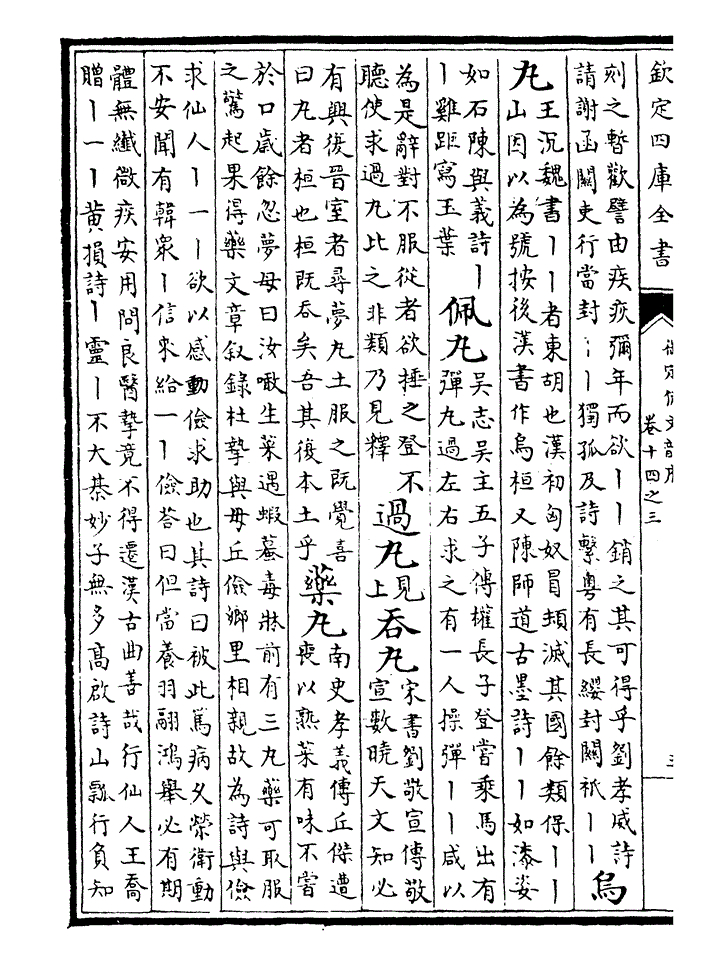 欽定四庫全書
卷十四之三
刻之暫歡譬由疾疢彌年而欲丨丨銷之其可得乎劉孝威詩
請謝函關吏行當封丨丨獨孤及詩繫粵有長纓封關祇丨丨
烏
丸
王沉魏書丨丨者東胡也漢初匈奴冒頓滅其國餘類保丨丨
山因以為號按後漢書作烏桓又陳師道古墨詩丨丨如漆姿
如石陳與義詩丨
丨雞距寫玉葉
佩丸
吳志吳主五子傳權長子登當乘馬出有
彈丸過左右求之有一人操彈丨丨咸以
為是辭對不服從者欲捶之登不
聽使求過丸比之非類乃見釋
過丸
見
上
吞丸
宋書劉敬宣傳敬
宣數曉天文知必
有興復晉室者尋夢丸土服之既覺喜
曰丸者桓也桓既吞矣吾其復本土乎
藥丸
南史孝義傳丘傑遭
喪以熟菜有味不嘗
於口歲餘忽夢母曰汝噉生菜遇蝦蟇毒牀前有三丸藥可取服
之驚起果得藥文章叙錄杜摯與毋丘儉鄉里相親故為詩與儉
求仙人丨一丨欲以感動儉求助也其詩曰被此篤病久榮衛動
不安聞有韓衆丨信來給一丨儉荅曰但當養羽翮鴻舉必有期
體無纖微疾安用問良醫摯竟不得遷漢古曲善哉行仙人王喬
贈丨一丨黄損詩丨靈丨不大棊妙子無多高啟詩山瓢行負知